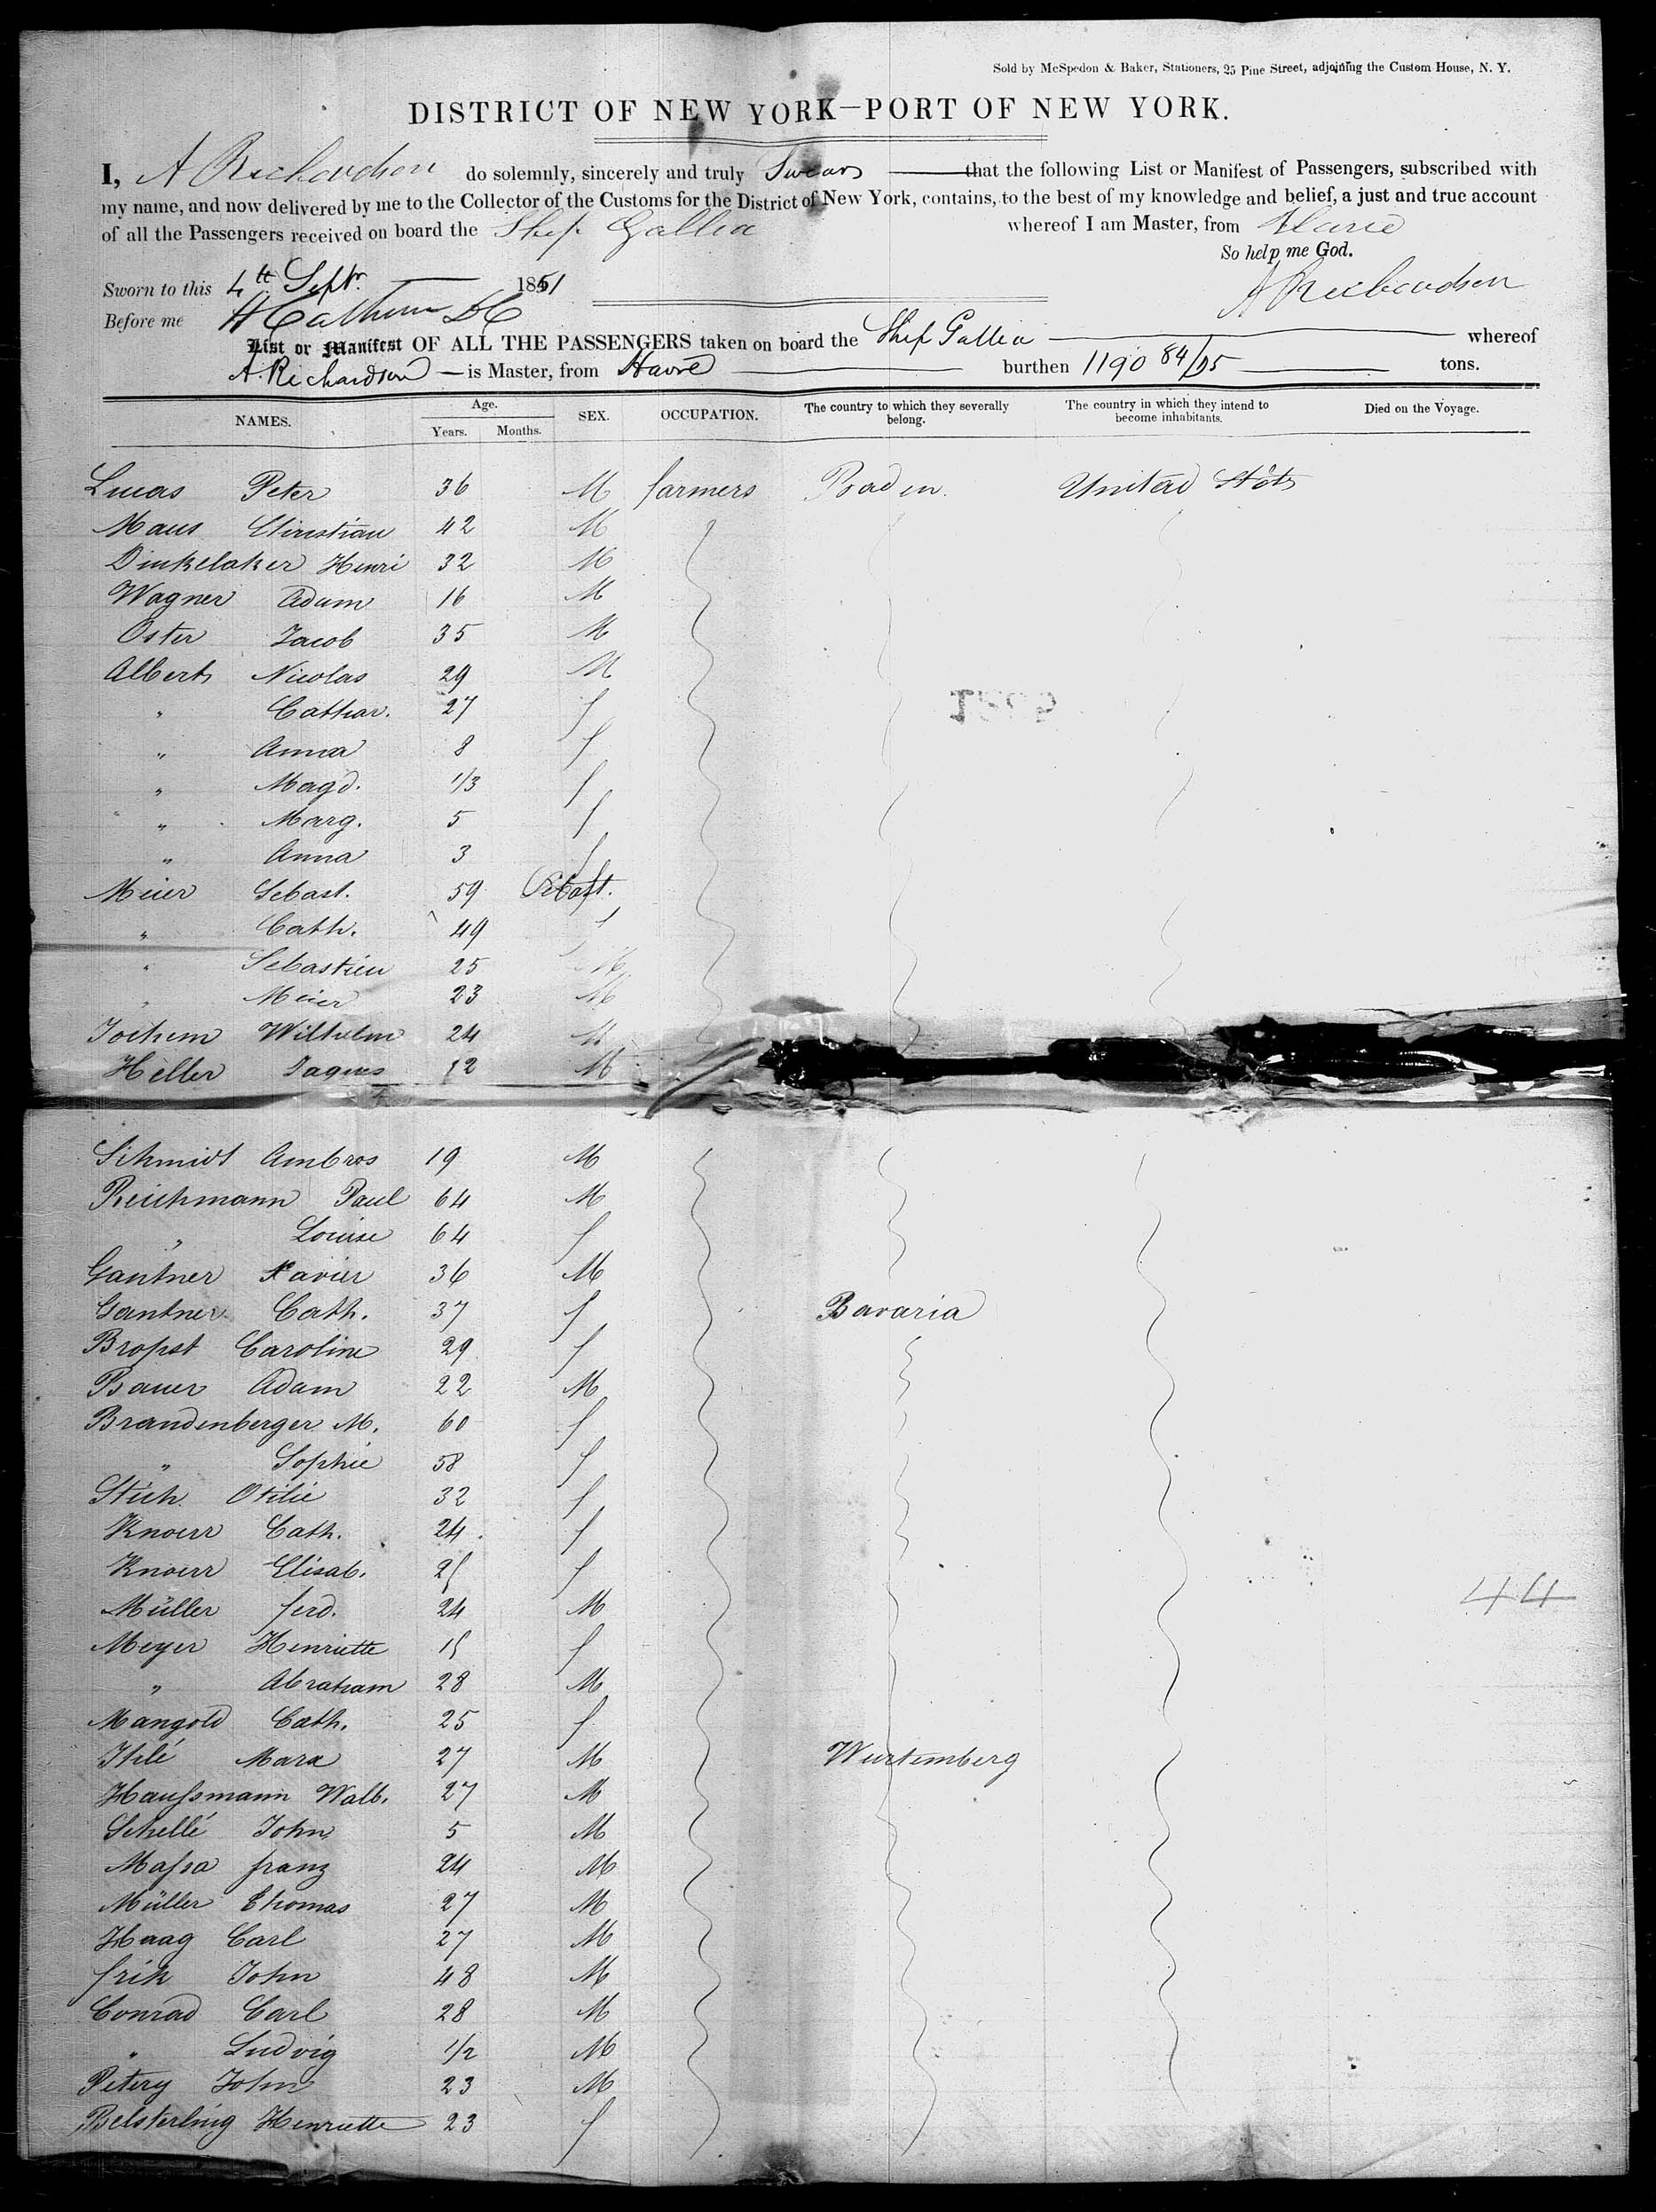 Sold by McSpedon & Baker, Stationers, 25 Pine Street, adjoining the Custom House, N. Y.
DISTRICT OF NEW YORK—PORT OF NEW YORK.
I, A Richardson do solemnly, sincerely and truly Swear that the following List or Manifest of Passengers, subscribed with
my name, and now delivered by me to the Collector of the Customs for the District of New York, contains, to the best of my knowledge and belief, a just and true account
of all the Passengers received on board the Ship Gallia whereof I am Master, from Havre
So help me God.
Sworn to this 4th Septr. 1851 A Richardson
Before me
List or Manifest OF ALL THE PASSENGERS taken on board the Ship Gallia whereof
A. Richardson is Master, from Havre burthen 1190 84/95 tons.
NAMES. Age. Years. Months. SEX. OCCUPATION. The country to which they severally belong. The country in which they intend to become inhabitants. Died on the Voyage.
Lucas Peter 36 M farmers Baden. United Stats
Maus Christian 42 M
Dinkelaker Henri 32 M
Wagner Adam 16 M
Oster Jacob 35 M
Albert Nicolas 29 M
" Cathar. 27 f
" Anna 8 f
" Magd. 1/3 f
" Marg. 5 f
" Anna 3 f
Meier Sebast. 59
" Cath. 49 f
" Sebastien 25 M
" Meier 23 M
Jochem Wilhelm 24 M
Heller Jaques 12 M
Schmidt Ambros 19 M
Reichmann Paul 64 M
" Louise 64 f
Gantner Xavier 36 M
Gantner Cath. 37 f Bavaria
Bropst Caroline 29 f
Bauer Adam 22 M
Brandenberger M. 60 f
" Sophie 58 f
Stich Otilie 32 f
Knoerr Cath. 24 f
Knoerr Elisab. 25 f
Müller ferd. 24 M
44
Meyer Henriette 15 f
" Abraham 28 M
Mangold Cath. 25 f
Ihlé Marx 27 M Wurtemberg
Haussmann Walb. 27 M
Schellé John 5 M
Massa franz 24 M
Müller Thomas 27 M
Haag Carl 27 M
frik John 48 M
Conrad Carl 28 M
" Ludvig 1/2 M
Petery John 23 M
Belsterling Henriette 23 f